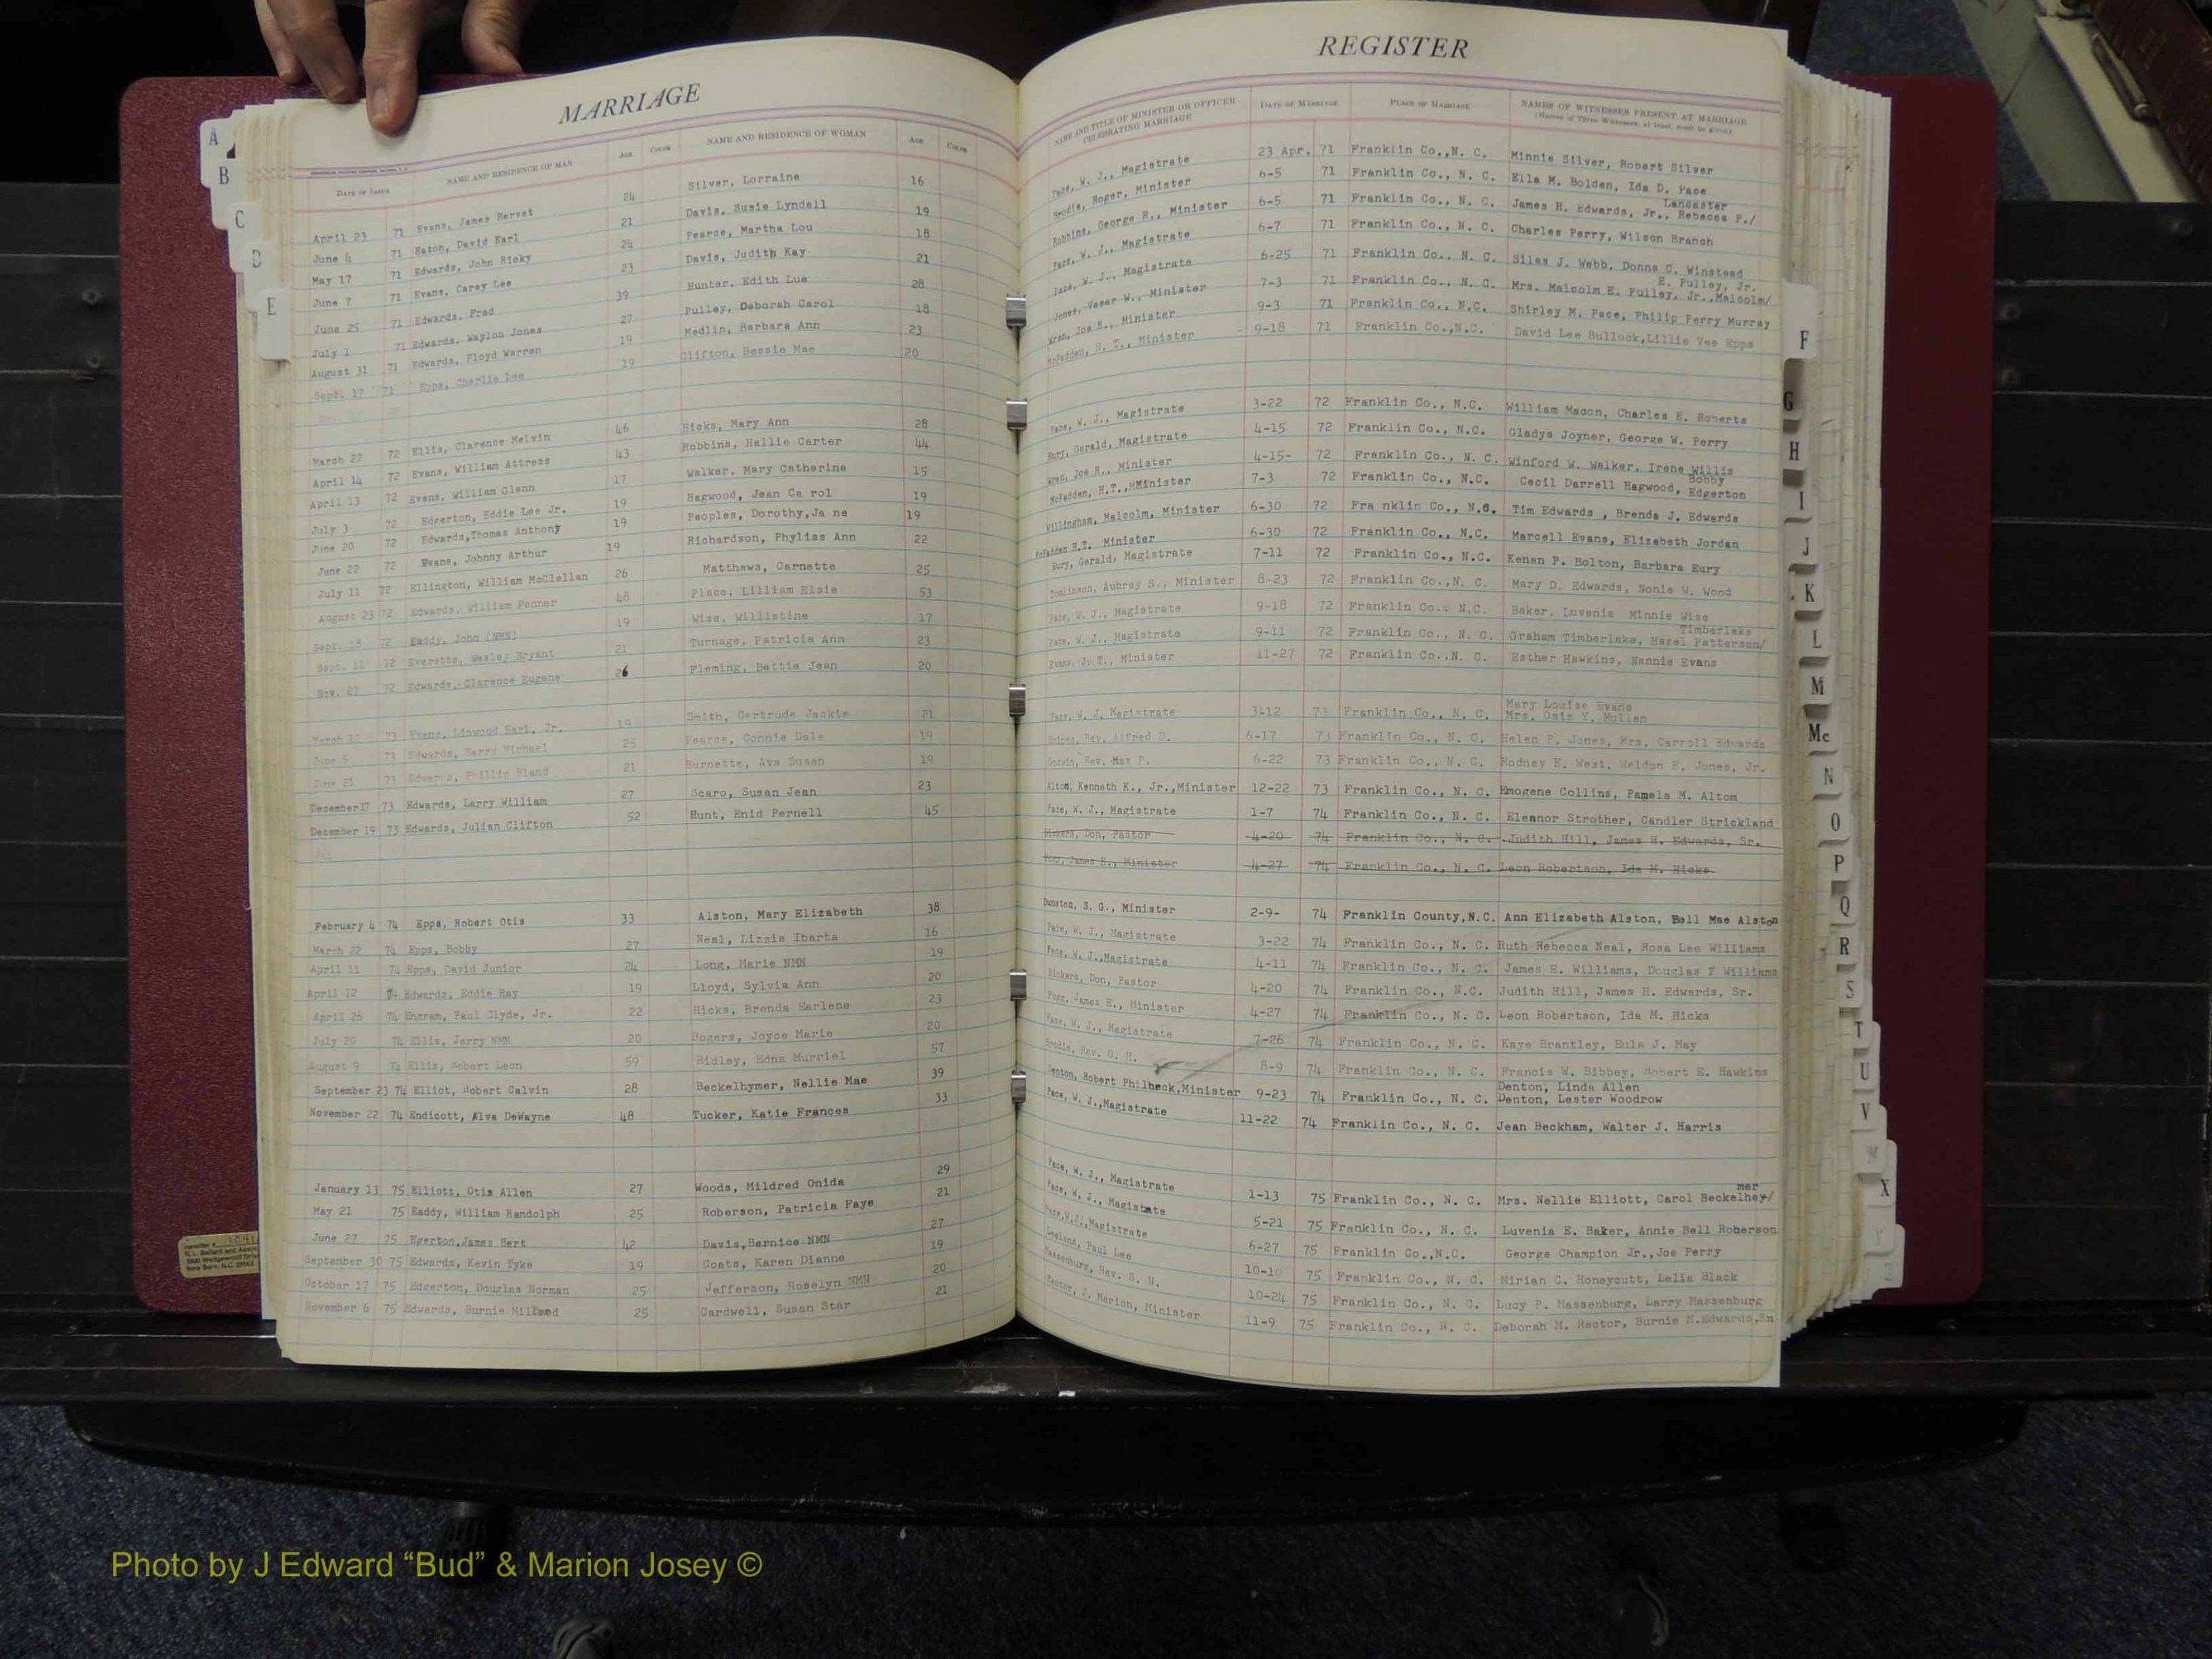 MARRIAGE
REGISTER
DATE OF ISSUE NAME AND RESIDENCE OF MAN AGE COLOR NAME AND RESIDENCE OF WOMAN AGE COLOR
NAME AND TITLE OF MINISTER OR OFFICER CELEBRATING MARRIAGE DATE OF MARRIAGE PLACE OF MARRIAGE NAMES OF WITNESSES PRESENT AT MARRIAGE
(Names of Three Witnesses, at least, must be given)
April 23 71 Evans, James Hervet 24 Silver, Lorraine 16 Pace, W. J., Magistrate 23 Apr. 71 Franklin Co.,N. C. Minnie Silver, Robert Silver
June 4 71 Eaton, David Earl 21 Davis, Susie Lyndell 19 Brodie, Roger, Minister 6-5 71 Franklin Co., N. C. Ella M. Bolden, Ida D. Pace
May 17 71 Edwards, John Ricky 24 Pearce, Martha Lou 18 Robbins, George R., Minister 6-5 71 Franklin Co., N. C. James H. Edwards, Jr., Rebecca P./ Lancaster
June 7 71 Evans, Carey Lee 23 Davis, Judith Kay 21 Pace, W. J., Magistrate 6-7 71 Franklin Co., N. C. Charles Perry, Wilson Branch
June 25 71 Edwards, Fred 39 Hunter, Edith Lue 28 Pace, W. J., Magistrate 6-25 71 Franklin Co., N. C. Silas J. Webb, Donna C. Winstead
July 1 71 Edwards, Waylon Jones 27 Pulley, Deborah Carol 18 Jones, Vaser W., Minister 7-3 71 Franklin Co., N. C. Mrs. Malcolm E. Pulley, Jr.,Malcolm/ E. Pulley, Jr.
August 31 71 Edwards, Floyd Warren 19 Medlin, Barbara Ann 23 Wren, Joe R., Minister 9-3 71 Franklin Co., N.C. Shirley M. Pace, Philip Perry Murray
Sept. 17 71 Epps, Charlie Lee 19 Clifton, Bessie Mae 20 McFadden, H. T., Minister 9-18 71 Franklin Co.,N.C. David Lee Bullock,Lillie Vee Epps
March 22 72 Ellis, Clarence Melvin 46 Hicks, Mary Ann 28 Pace, W. J., Magistrate 3-22 72 Franklin Co., N.C. William Macon, Charles E. Roberts
April 14 72 Evans, William Attress 43 Robbins, Hallie Carter 44 Eury, Gerald, Magistrate 4-15 72 Franklin Co., N.C. Gladys Joyner, George W. Perry
April 13 72 Evans, William Glenn 17 Walker, Mary Catherine 15 Wren, Joe R., Minister 4-15- 72 Franklin Co., N. C. Winford W. Walker, Irene Willis
July 3 72 Edgerton, Eddie Lee Jr. 19 Hagwood, Jean Ca rol 19 McFadden, H.T.,MMinister 7-3 72 Franklin Co., N.C. Cecil Darrell Hagwood, Bobby Edgerton
June 20 72 Edwards,Thomas Anthony 19 Peoples, Dorothy,Ja ne 19 Willingham, Malcolm, Minister 6-30 72 Fra nklin Co., N.C. Tim Edwards , Brenda J. Edwards
June 22 72 Evans, Johnny Arthur 19 Richardson, Phyliss Ann 22 McFadden H.T. Minister 6-30 72 Franklin Co., N.C. Marcell Evans, Elizabeth Jordan
July 11 72 Ellington, William McClellan 26 Matthews, Carnette 25 Eury, Gerald, Magistrate 7-11 72 Franklin Co., N.C. Kenan P. Bolton, Barbara Eury
August 23 72 Edwards, William Penner 48 Place, Lilliam Elsie 53 Tomlinson, Aubrey S., Minister 8-23 72 Franklin Co.,N. C. Mary D. Edwards, Nonie W. Wood
Sept. 18 72 Eaddy, John (NMN) 19 Wise, Willistine 17 Pace, W. J., Magistrate 9-18 72 Franklin Co., N.C. Baker, Luvenia Minnie Wise
Sept. 11 72 Everette, Wesley Bryant 21 Turnage, Patricia Ann 23 Pace, W. J., Magistrate 9-11 72 Franklin Co., N. C. Graham Timberlake, Hazel Patterson/ Timberlake
Nov. 27 72 Edwards, Clarence Eugene 26 Fleming, Bettie Jean 20 Evans, J. T., Minister 11-27 72 Franklin Co.,N. C. Esther Hawkins, Nannie Evans
March 12 73 Evans, Linwood Earl, Jr. 19 Smith, Gertrude Jackie 21 Pace, W. J. Magistrate 3-12 73 Franklin Co., N. C. Mary Louise Evans Mrs. Osis Y. Mullen
June 5 73 Edwards, Barry Michael 25 Pearce, Connie Dale 19 Rev. Alfred D. 6-17 73 Franklin Co., N. C. Helen P. Jones, Mrs. Carroll Edwards
June 21 73 Edwards, Phillip Bland 21 Burnette, Ava Susan 19 Godwin, Rev. Max P. 6-22 73 Franklin Co., N. C. Rodney E. West, Weldon B. Jones, Jr.
December17 73 Edwards, Larry William 27 Scaro, Susan Jean 23 Altom, Kenneth K., Jr.,Minister 12-22 73 Franklin Co., N. C. Emogene Collins, Pamela M. Altom
December 19 73 Edwards, Julian Clifton 52 Hunt, Enid Pernell 45 Pace, W. J., Magistrate 1-7 74 Franklin Co., N. C. Eleanor Strother, Candler Strickland
Bickers, Don, Pastor 4-20 74 Franklin Co., N. C. Judith Hill, James H. Edwards, Sr.
Fogg, James E., Minister 4-27 74 Franklin Co., N. C. Leon Robertson, Ida M. Hicks
February 4 74 Epps, Robert Otis 33 Alston, Mary Elizabeth 38 Dunston, S. G., Minister 2-9- 74 Franklin County,N.C. Ann Elizabeth Alston, Bell Mae Alston
March 22 74 Epps, Bobby 27 Neal, Lizzie Ibarta 16 Pace, W. J., Magistrate 3-22 74 Franklin Co., N. C. Ruth Rebecca Neal, Rosa Lee Williams
April 11 74 Epps, David Junior 24 Long, Marie NMN 19 Pace, W. J.,Magistrate 4-11 74 Franklin Co., N. C. James E. Williams, Douglas T Williams
April 12 74 Edwards, Eddie Ray 19 Lloyd, Sylvia Ann 20 Bickers, Don, Pastor 4-20 74 Franklin Co., N.C. Judith Hill, James H. Edwards, Sr.
April 26 74 Engram, Paul Clyde, Jr. 22 Hicks, Brenda Earlene 23 Fogg, James E., Minister 4-27 74 Franklin Co., N. C. Leon Robertson, Ida M. Hicks
July 20 74 Ellis, Jerry NMN 20 Rogers, Joyce Marie 20 Pace, W. J., Magistrate 7-26 74 Franklin Co., N. C. Kaye Brantley, Eula J. May
August 9 74 Ellis, Robert Leon 59 Ridley, Edna Murriel 57 Brodie, Rev. O. H. 8-9 74 Franklin Co., N. C. Francis W. Bibbey, Robert E. Hawkins
September 23 74 Elliot, Robert Calvin 28 Beckelhymer, Nellie Mae 39 Denton, Robert Philbeck,Minister 9-23 74 Franklin Co., N. C. Denton, Linda Allen Denton, Lester Woodrow
November 22 74 Endicott, Alva DeWayne 48 Tucker, Katie Frances 33 Pace, W. J.,Magistrate 11-22 74 Franklin Co., N. C. Jean Beckham, Walter J. Harris
January 13 75 Elliott, Otis Allen 27 Woods, Mildred Onida 29 Pace, W. J., Magistrate 1-13 75 Franklin Co., N. C. Mrs. Nellie Elliott, Carol Beckelhey/ mer
May 21 75 Eaddy, William Randolph 25 Roberson, Patricia Faye 21 Pace, W. J., Magistate 5-21 75 Franklin Co., N. C. Luvenia E. Baker, Annie Bell Roberson
June 27 75 Egerton,James Bert 42 Davis,Bernice NMN 27 Pace,W.J.,Magistrate 6-27 75 Franklin Co.,N.C. George Champion Jr.,Joe Perry
September 30 75 Edwards, Kevin Tyke 19 Coats, Karen Dianne 19 Leeland, Paul Lee 10-10 75 Franklin Co., N. C. Mirian C. Honeycutt, Lelia Black
October 17 75 Edgerton, Douglas Norman 25 Jefferson, Roselyn NMN 20 Massenburg, Rev. S. N. 10-24 75 Franklin Co., N. C. Lucy P. Massenburg, Larry Massenburg
November 6 75 Edwards, Burnie Millred 25 Cardwell, Susan Star 21 Rector, J. Marion, Minister 11-9 75 Franklin Co., N. C. Deborah M. Rector, Burnie M.Edwards,Sn
A
B
C
D
E
F
G
H
I
J
K
L
M
Mc
N
O
P
Q
R
S
T
U
V
W
X
Y
Z
Photo by J Edward “Bud” & Marion Josey ©